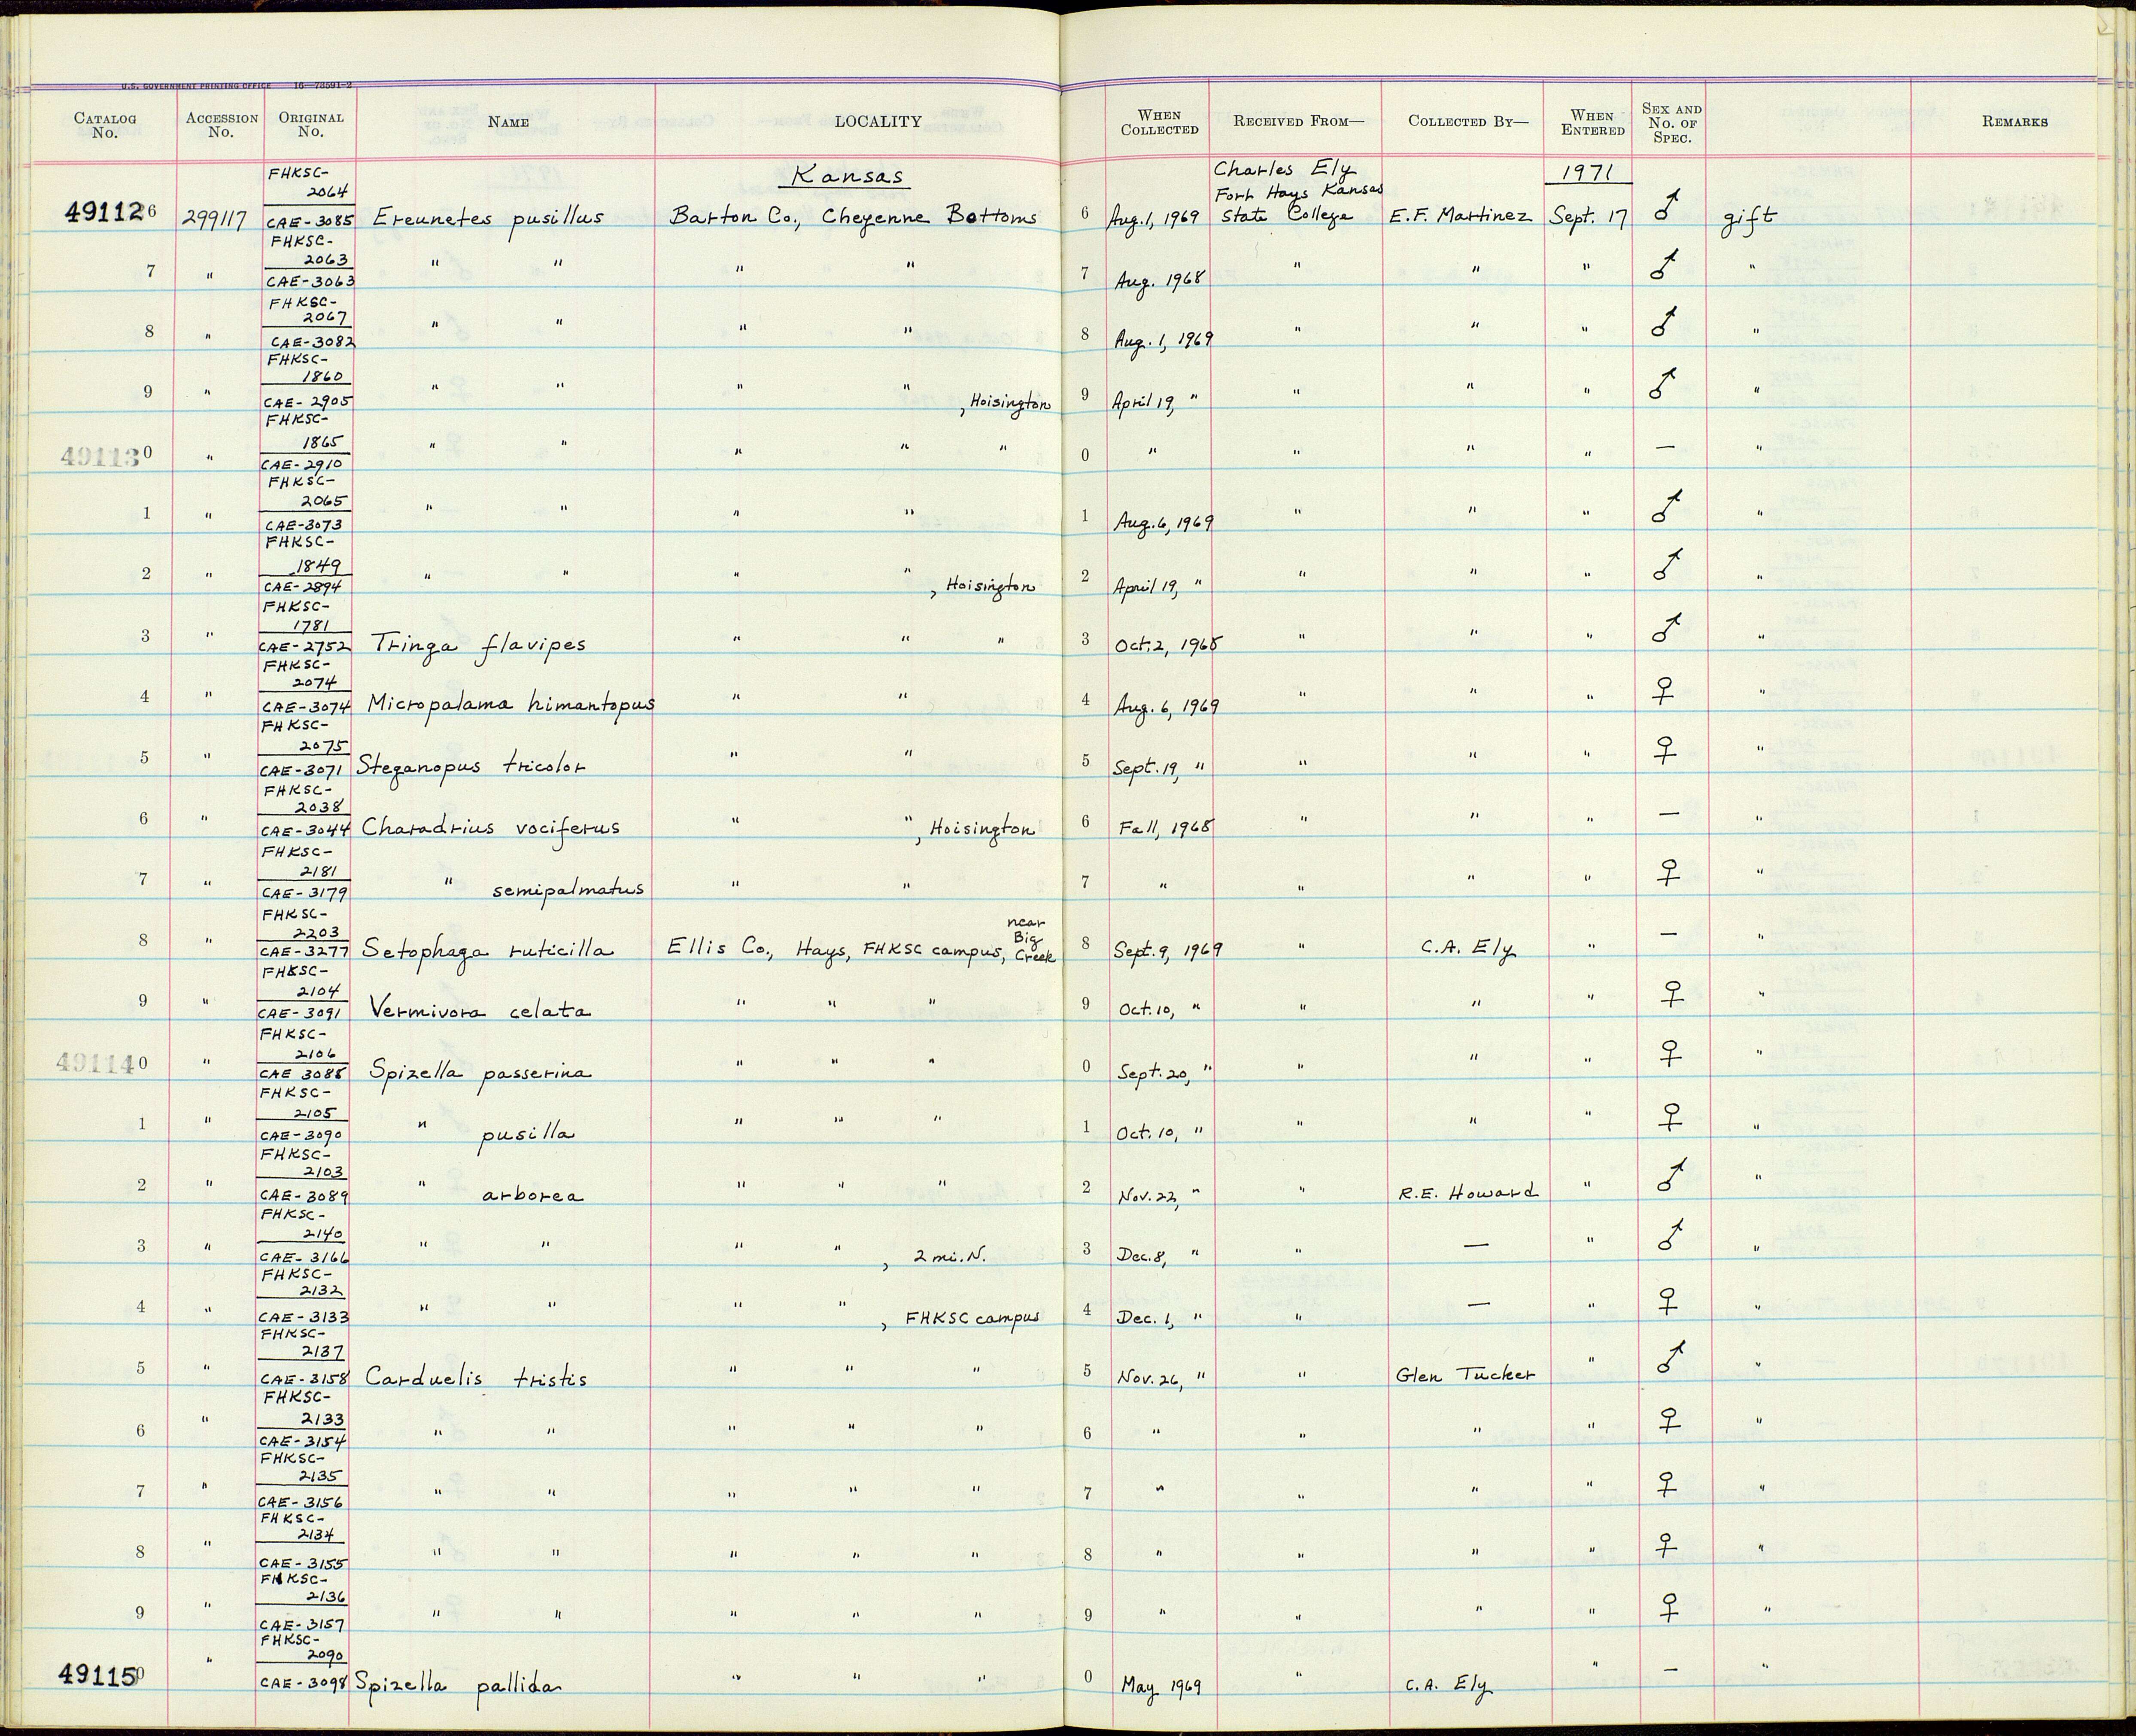 U.S. GOVERNMENT PRINTING OFFICE 16—73591-2
CATALOG No. ACCESSION No. ORIGINAL No. NAME LOCALITY WHEN COLLECTED RECEIVED FROM— COLLECTED BY— WHEN ENTERED SEX AND No. OF SPEC. REMARKS
FHKSC- Kansas Charles Ely 1971
2064 Fort Hays Kansas
491126 299117 CAE-3085 Ereunetes pusillus Barton Co., Cheyenne Bottoms 6 Aug. 1, 1969 State College E.F. Martinez Sept. 17 ♂ gift
FHKSC-
2063
7 " CAE-3063 " " " " 7 Aug. 1968 " " " ♂ "
FHKSC-
2067
8 " CAE-3082 " " " " 8 Aug. 1, 1969 " " " ♂ "
FHKSC-
1860
9 " CAE-2905 " " " " , Hoisington 9 April 19, " " " " ♂ "
FHKSC-
1865
491130 " CAE-2910 " " " " " 0 " " " " — "
FHKSC-
2065
1 " CAE-3073 " " " " 1 Aug. 6, 1969 " " " ♂ "
FHKSC-
1849
2 " CAE-2894 " " " " , Hoisington 2 April 19, " " " " ♂ "
FHKSC-
1781
3 " CAE-2752 Tringa flavipes " " " 3 Oct. 2, 1968 " " " ♂ "
FHKSC-
2074
4 " CAE-3074 Micropalama himantopus " " 4 Aug. 6, 1969 " " " ♀ "
FHKSC-
2075
5 " CAE-3071 Steganopus tricolor " " 5 Sept. 19, " " " " ♀ "
FHKSC-
2038
6 " CAE-3044 Charadrius vociferus " " , Hoisington 6 Fall, 1968 " " " — "
FHKSC-
2181
7 " CAE-3179 " semipalmatus " " 7 " " " " ♀ "
FHKSC-
2203
8 " CAE-3277 Setophaga ruticilla Ellis Co., Hays, FHKSC campus, near Big Creek 8 Sept. 9, 1969 " C.A. Ely " — "
FHKSC-
2104
9 " CAE-3091 Vermivora celata " " " 9 Oct. 10, " " " " ♀ "
FHKSC-
2106
491140 " CAE 3088 Spizella passerina " " " 0 Sept. 20, " " " " ♀ "
FHKSC-
2105
1 " CAE-3090 " pusilla " " " 1 Oct. 10, " " " " ♀ "
FHKSC-
2103
2 " CAE-3089 " arborea " " " 2 Nov. 22, " " R.E. Howard " ♂ "
FHKSC-
2140
3 " CAE-3166 " " " " , 2 mi. N. 3 Dec. 8, " " — " ♂ "
FHKSC-
2132
4 " CAE-3133 " " " " , FHKSC campus 4 Dec. 1, " " — " ♀ "
FHKSC-
2137
5 " CAE-3158 Carduelis tristis " " " 5 Nov. 26, " " Glen Tucker " ♂ "
FHKSC-
2133
6 " CAE-3154 " " " " " 6 " " " " ♀ "
FHKSC-
2135
7 " CAE-3156 " " " " " 7 " " " " ♀ "
FHKSC-
2134
8 " CAE-3155 " " " " " 8 " " " " ♀ "
FHKSC-
2136
9 " CAE-3157 " " " " " 9 " " " " ♀ "
FHKSC-
2090
491150 " CAE-3098 Spizella pallida " " " 0 May 1969 " C.A. Ely " — "